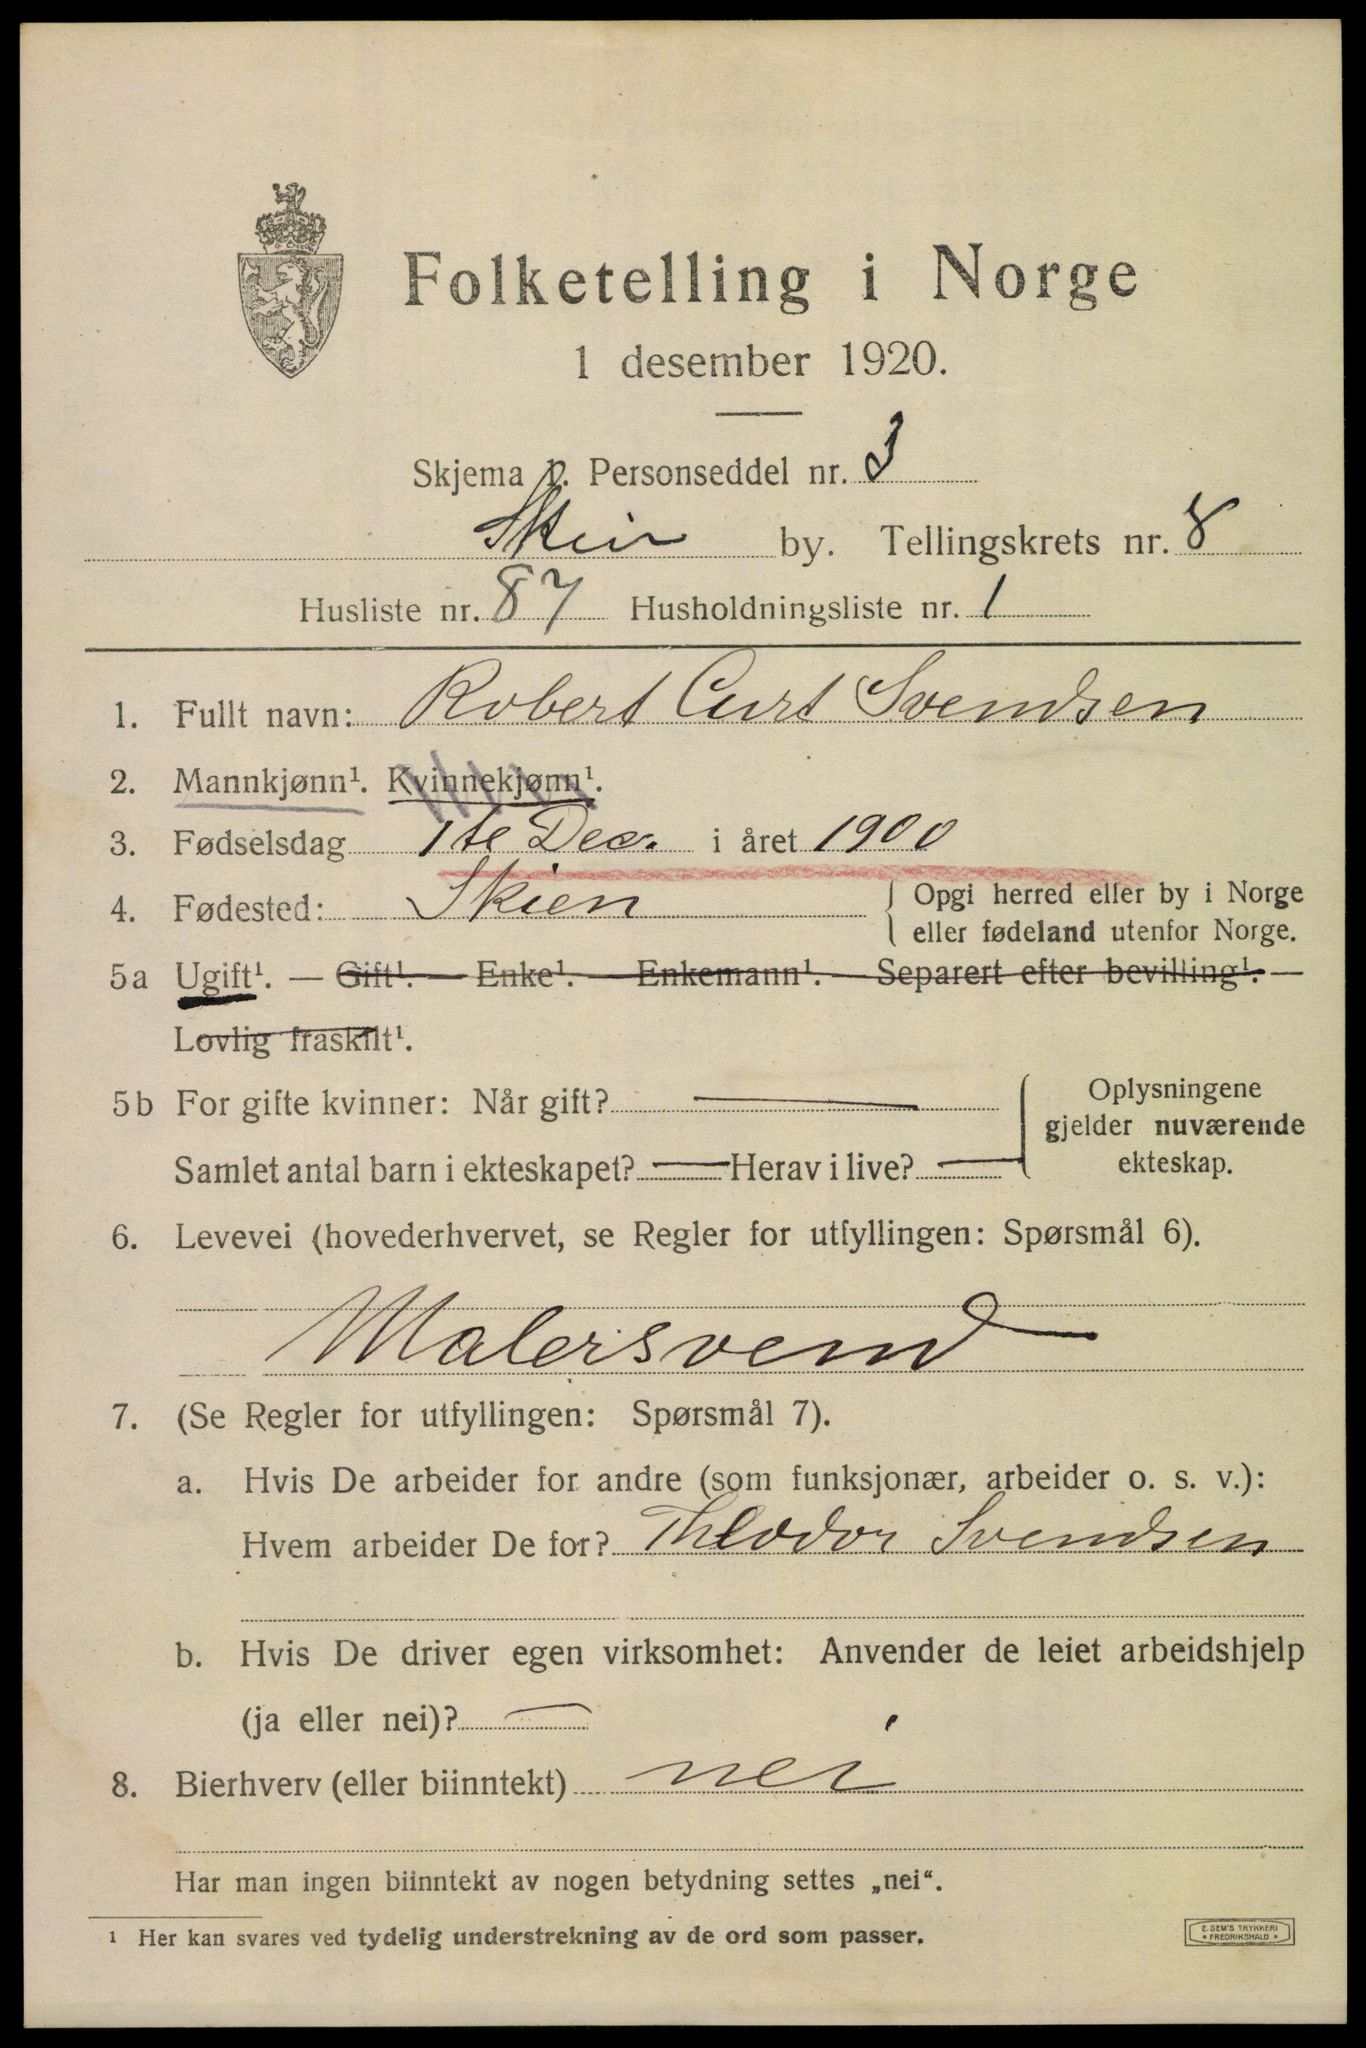 Folketelling i Norge
1 desember 1920.
Skjema 2. Personseddel nr. 3
Skien by. Tellingskrets nr. 8
Husliste nr. 87 Husholdningsliste nr. 1
1. Fullt navn: Robert Curt Svendsen
2. Mannkjønn¹. Kvinnekjønn¹.
3. Fødselsdag 1te Dec. i året 1900
4. Fødested: Skien { Opgi herred eller by i Norge
eller fødeland utenfor Norge.
5a Ugift¹. — Gift¹. — Enke¹. — Enkemann¹. — Separert efter bevilling¹. —
Lovlig fraskilt¹.
5b For gifte kvinner: Når gift? —
Samlet antal barn i ekteskapet? — Herav i live? —
Oplysningene
gjelder nuværende
ekteskap.
6. Levevei (hovederhvervet, se Regler for utfyllingen: Spørsmål 6).
Malersvend
7. (Se Regler for utfyllingen: Spørsmål 7).
a. Hvis De arbeider for andre (som funksjonær, arbeider o. s. v.):
Hvem arbeider De for? Theodor Svendsen
b. Hvis De driver egen virksomhet: Anvender de leiet arbeidshjelp
(ja eller nei)? —
8. Bierhverv (eller biinntekt) nei
Har man ingen biinntekt av nogen betydning settes „nei“.
¹ Her kan svares ved tydelig understrekning av de ord som passer.
E. SEM'S TRYKKERI
• FREDRIKSHALD •